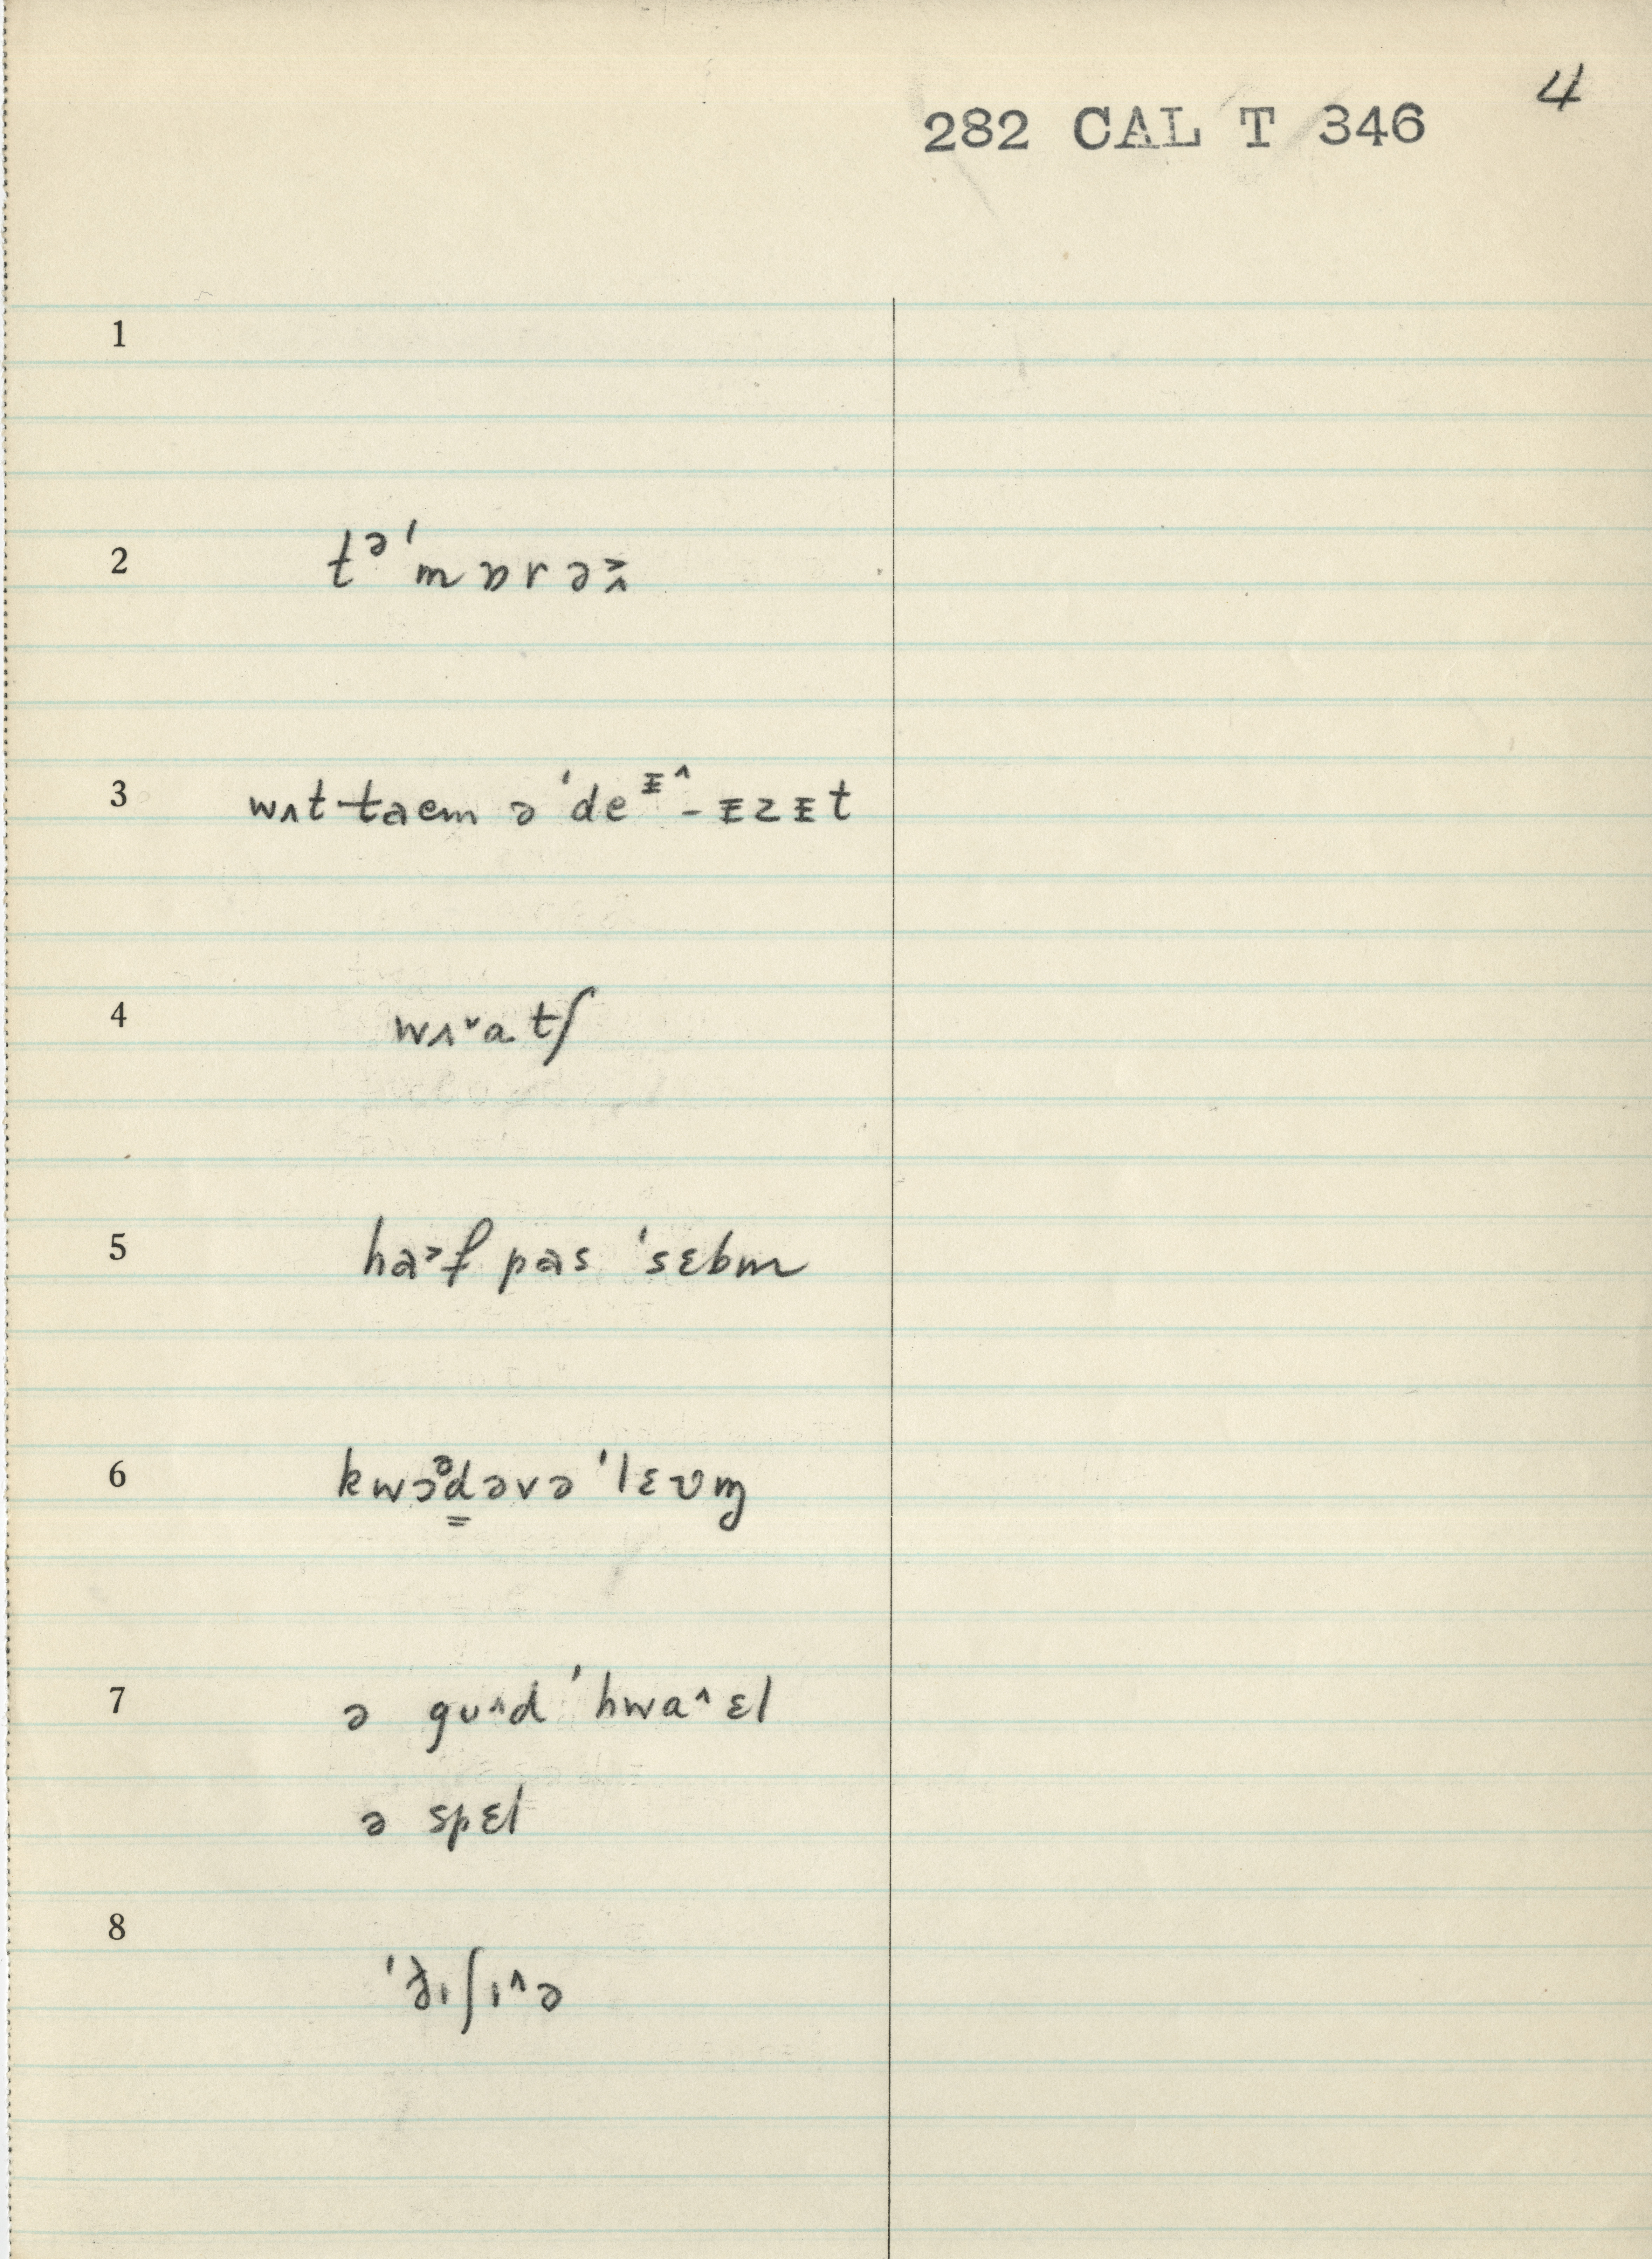 4
282 CAL T 346
1
2 tᵊˈmɒrəʌ̌
3 wʌt taem ə ˈdeᶦ^-ɪzɪt
4 wʌ˅atʃ
5 ha˃f pas ˈsɛbm
6 kwɔᵊd̳əvə ˈlɛvɱ
7 ə gʊ^d ˈhwa^ɛl
ə spɛl
8 ˈðɪʃɪ^ə